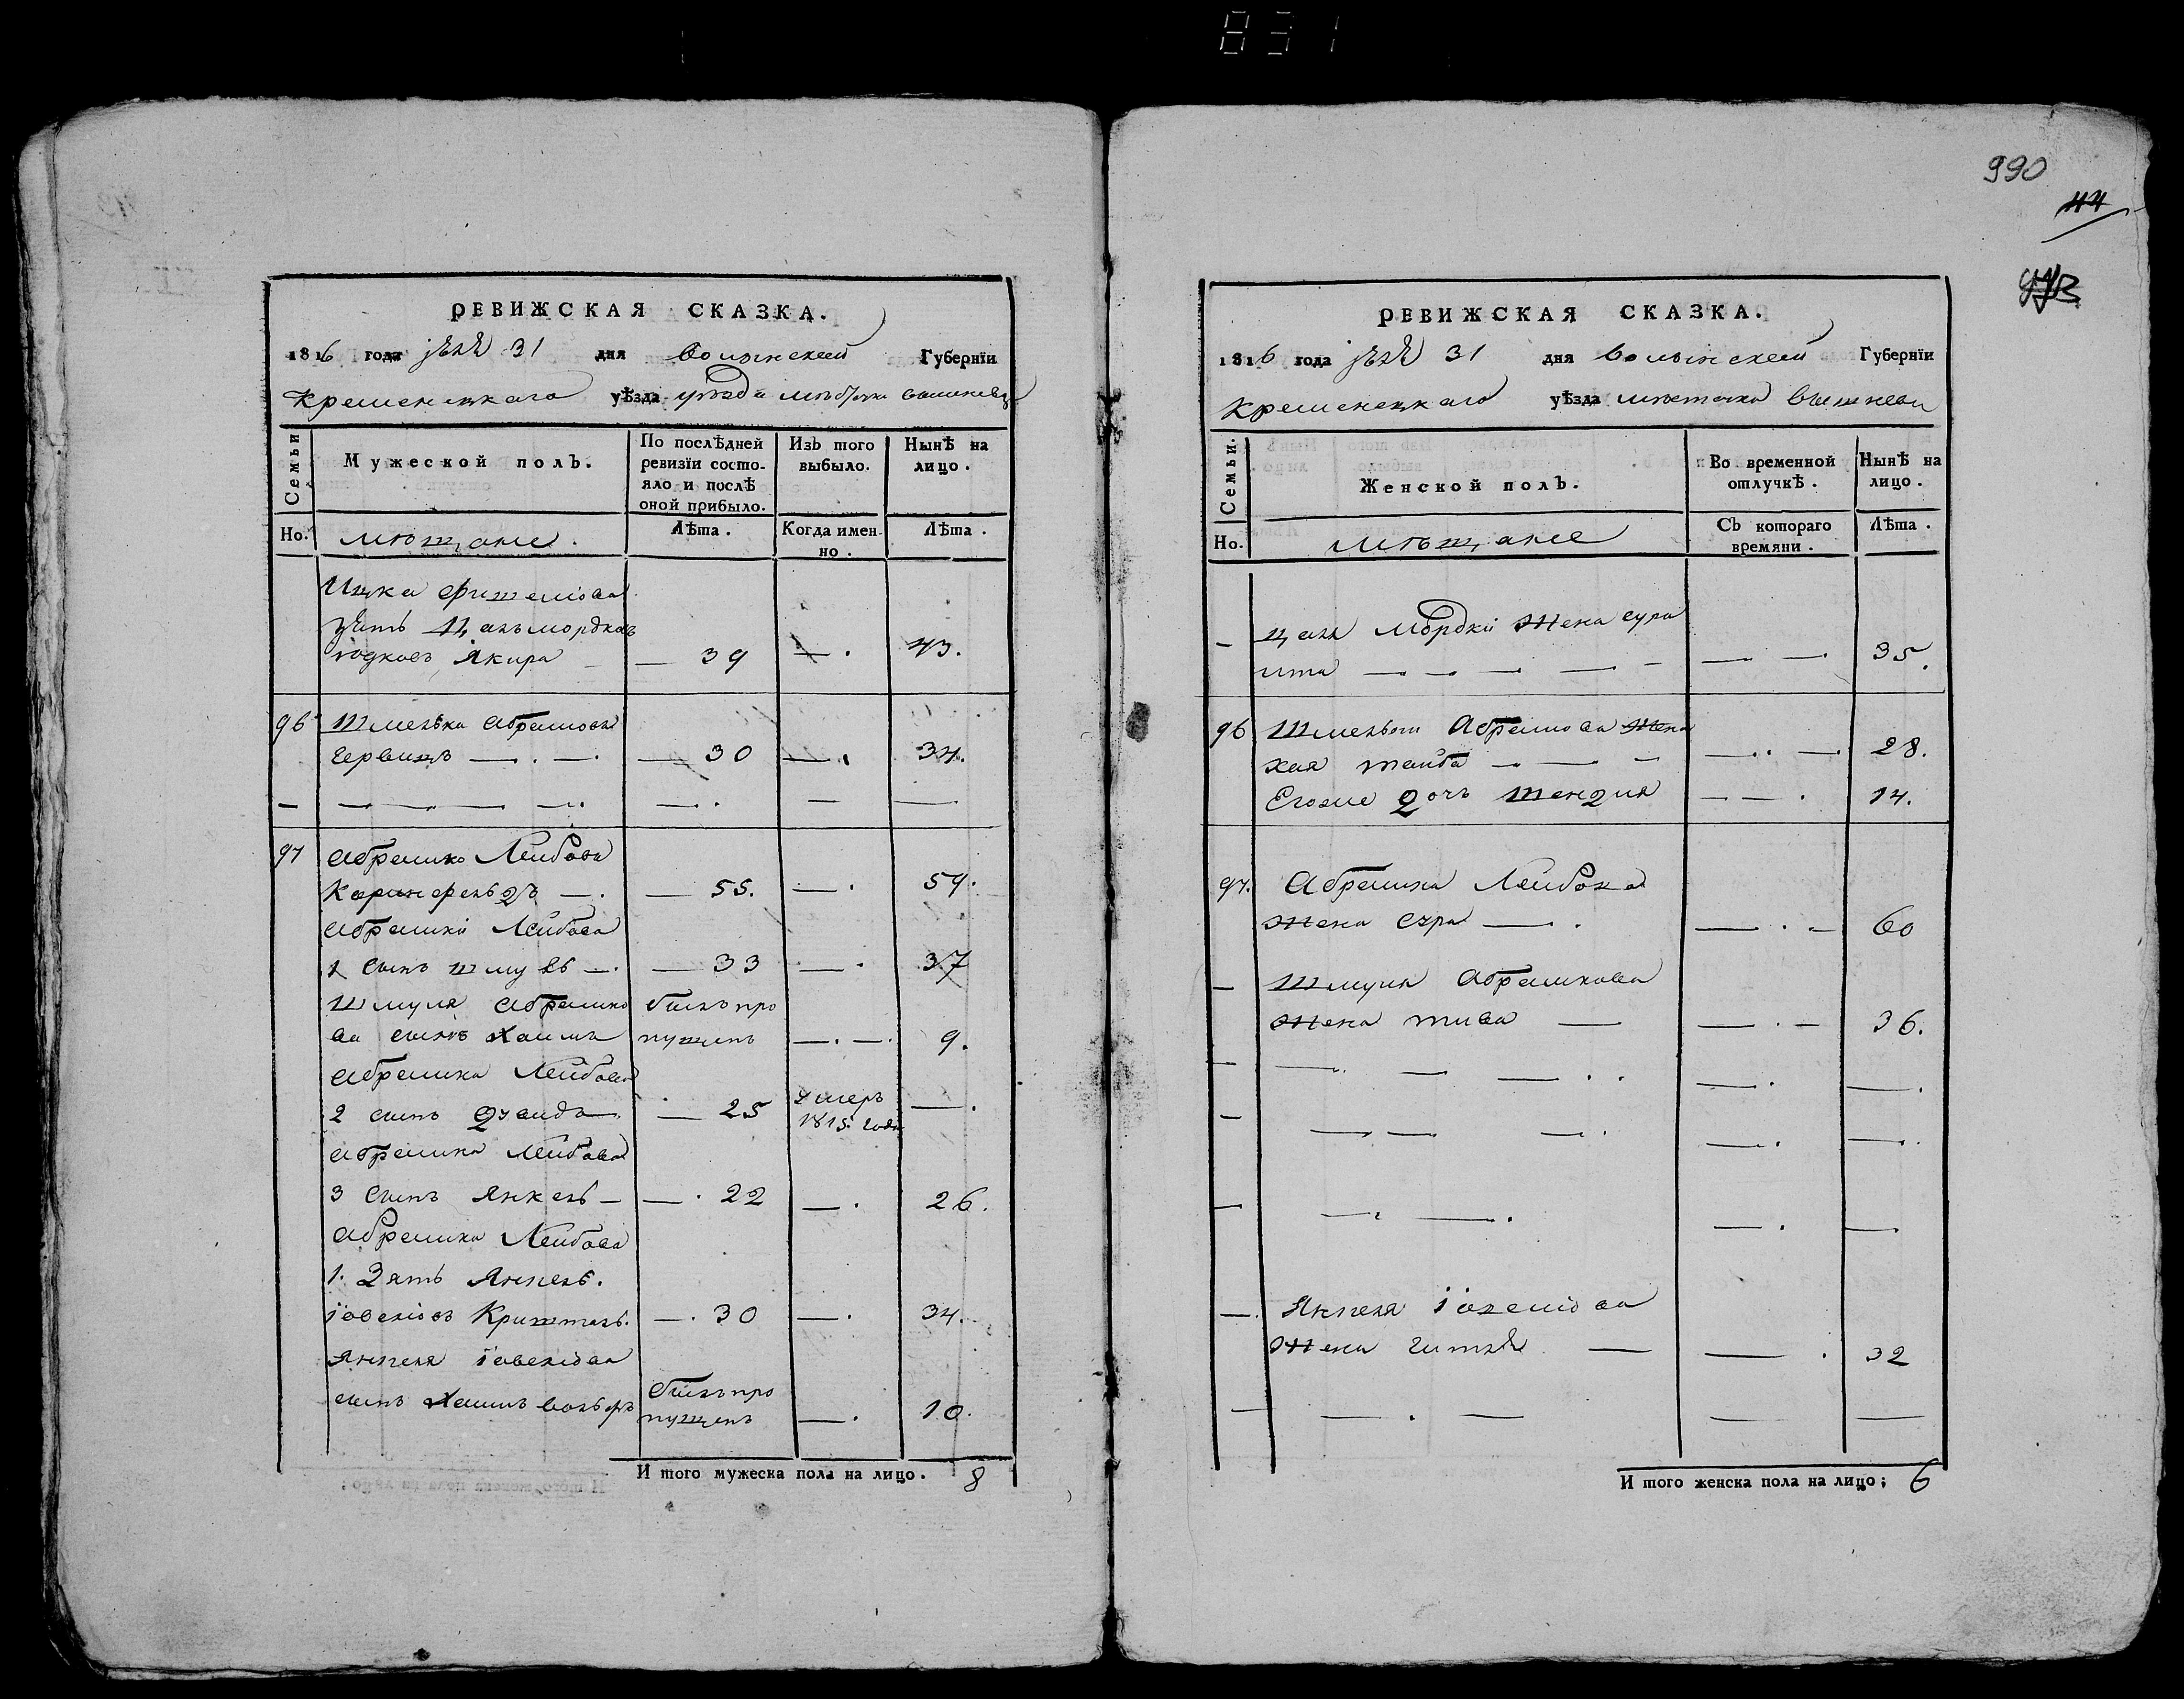 831
990
44
РЕВИЖСКАЯ СКАЗКА.
1816 года 31 дня Волынской Губернїи
Кременецкаго уѣзда уѣзда
Семьи
Мужеской полъ.
По послѣдней ревизїи состо-
яло и послѣ
оной прибыло.
Изъ того
выбыло.
Нынѣ на
лицо.
Но.
мѣщане.
Лѣта.
Когда имен-
но.
Лѣта.
Ицка Фишелiова
зять Цаль мордков
Iодковъ Якира — 39 — . 43.
96 Шмелька Абрамовъ
— . — . — 30 — . 34.
— — — — — . — . — —
97 Абрамко Лейбовъ
— . — 55. — . 59.
Абрамки Лейбова
1 сынъ шмуль — . — 33 — . 37
Шмуля Абрамко былъ про
ва сынъ Хаимъ пущенъ — . — . 9.
Абрамка Лейбова
2 сынъ Дувидъ — 25 умеръ
1815. года — .
Абрамка Лейбова
3 сынъ Янкель — — . 22 — . 26.
Абрамка Лейбова
1. Зять Янкель.
Криштель. — . 30 — . 34.
Янкеля
сынъ Хаимъ Вольфъ былъ про
пущенъ — . 10.
И того мужеска пола на лицо. 8
РЕВИЖСКАЯ СКАЗКА.
1816 года 31 дня Волынской Губернїи
Кременецкаго уѣзда местечка
Семьи.
Женской полъ.
Во временной
отлучкѣ.
Нынѣ на
лицо.
Но.
мѣщане
Съ котораго
времяни.
Лѣта.
— Цаля Мордки Жена сура
ита — — — — — — — 35.
96 Шмельки Абрамова Жена
хая тайба — — — — . . — 28.
Егоже дочь шендля — — . 14.
97. Абрамка Лейбова
жена сура — . — . — 60
— Шмуля Абрамкова
жена тива — — . — 36.
— — . . — — . . — . — .
— — — — . — . — .
— — . — . — . —
— . Янкеля
жена гитля — — . 32
— — . — — —
И того женска пола на лицо; 6